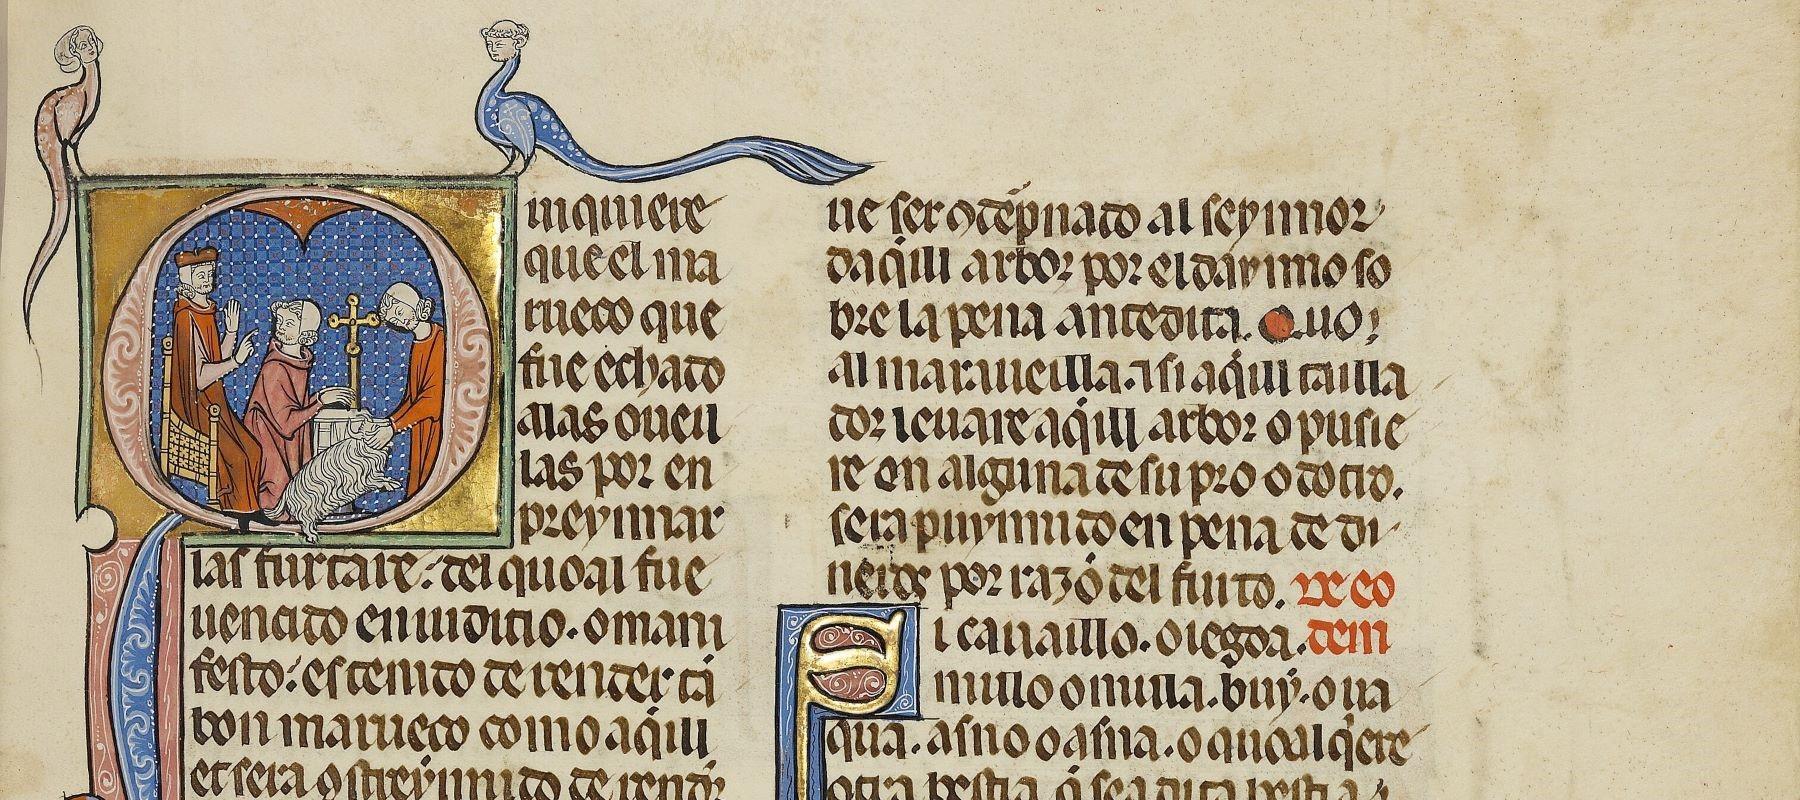 uinquiere
que el ma
rueco que
fue echado
a las oueil
las por en
preymnar
las furtare: del quoal fue
uencido en iudicio. o mani
festo: es tenido de render tā
bon marueco como aq̇ill
et sera ꝯstreynnido de rendr̄
ue ser ꝯdēpnado al seynnor
daq̇ill arbor por el daynno so
bre la pena antedita. Quo;
al maraueilla. ⁊ si aq̇ill tailla
dor leuare aq̇ill arbor o pusie
re en alguna de su pro o do cto.
sera puynnido en pena de di
neros por razō del furto. Rx eo
i cauaillo. o iegoa. dem
mulo o mula. buy. o ua
qua. asno o asna. o quoal q̇ere
otra bestia q̇ sea dita bestia